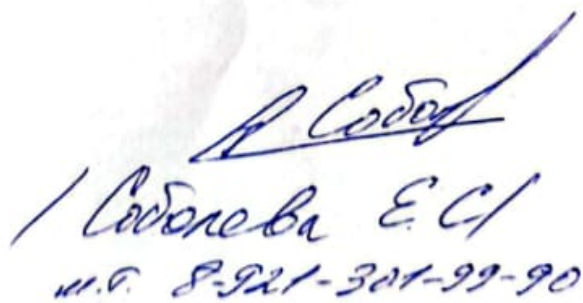 Собол
/ Соболева Е.С/
м.т. 8-921-301-99-90